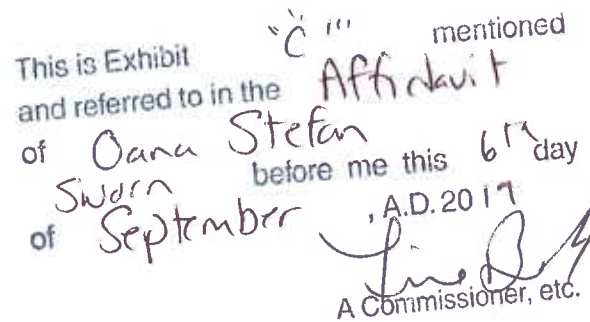 This is Exhibit "C" mentioned
and referred to in the Affidavit
of Oana Stefan
Sworn before me this 6th day
of September , A.D. 2017
A Commissioner, etc.